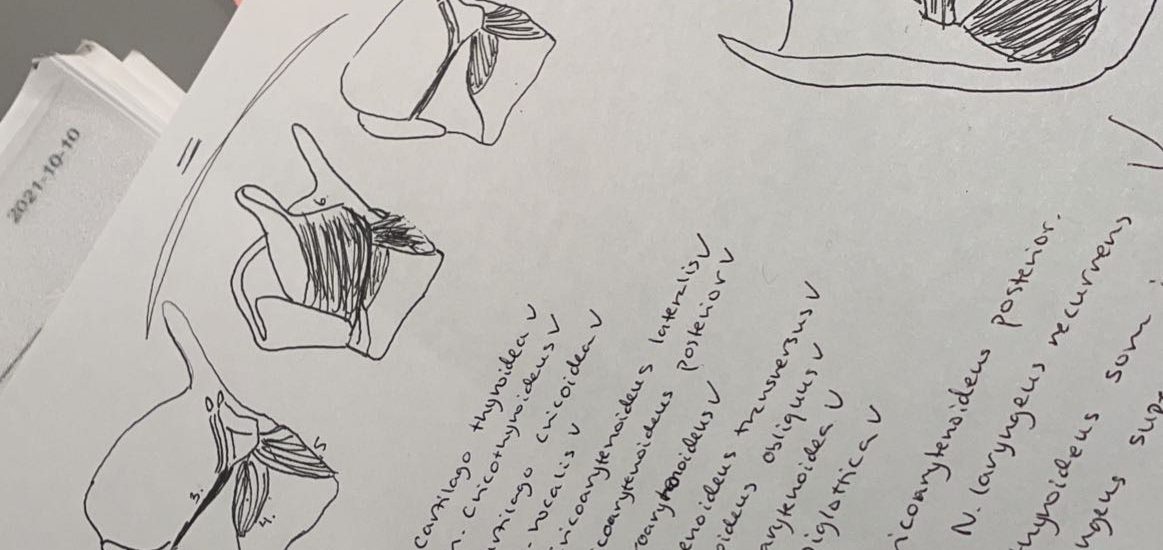 2021-10-10
6
5
3.
4.
Cartilago thyroidea ✓
m. cricothyroideus ✓
artilago cricoidea ✓
vocalis ✓
ricoarytenoideus lateralis ✓
coarytenoideus posterior ✓
roarytenoideus ✓
enoideus transversus ✓
oideus obliquus ✓
arytenoidea ✓
iglottica ✓
icoarytenoideus posterior.
N. laryngeus recurrens
hyroideus som
ngeus sup